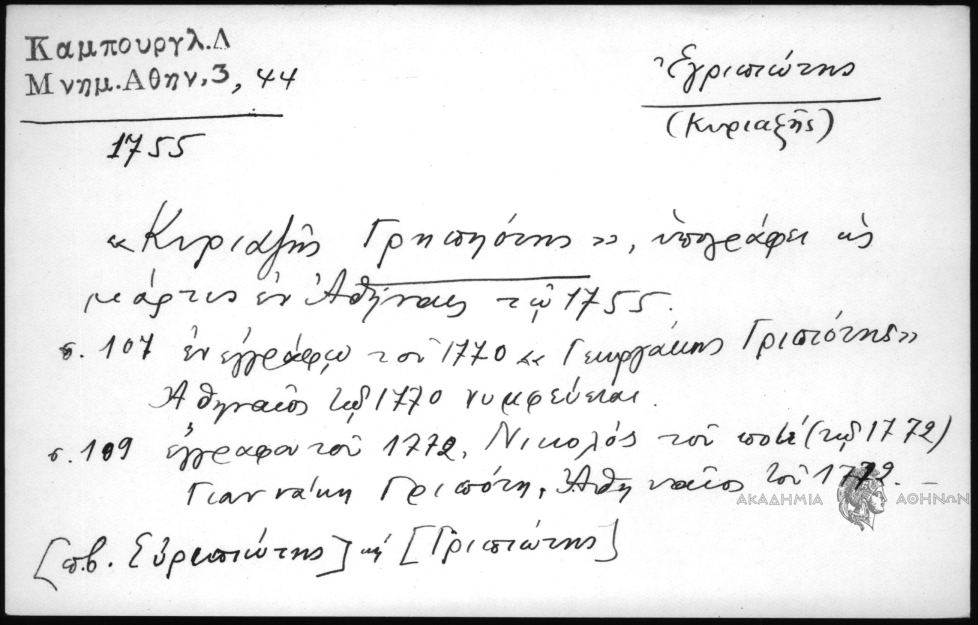 Καμπουργλ.Δ
Μνημ.Αθην.3, 44
1755
Ἐγριπιώτης
(Κυριαζῆς)
«Κυριαζῆς Γρηπηότης», ὑπογράφει ὡς
μάρτυς ἐν Ἀθήναις τῷ 1755.
σ. 107 ἐν ἐγγράφῳ τοῦ 1770 «Γεωργάκης Γριπιότης»
Ἀθηναῖος τῷ 1770 νυμφεύεται.
σ. 109 ἔγγραφον τοῦ 1772, Νικολός τοῦ ποτέ (τῷ 1772)
Γιαννάκη Γριπότη, Ἀθηναῖος τοῦ 1772.
ΑΚΑΔΗΜΙΑ ΑΘΗΝΩΝ
[πβ. Εὐριπιώτης] καί [Γριπιώτης]